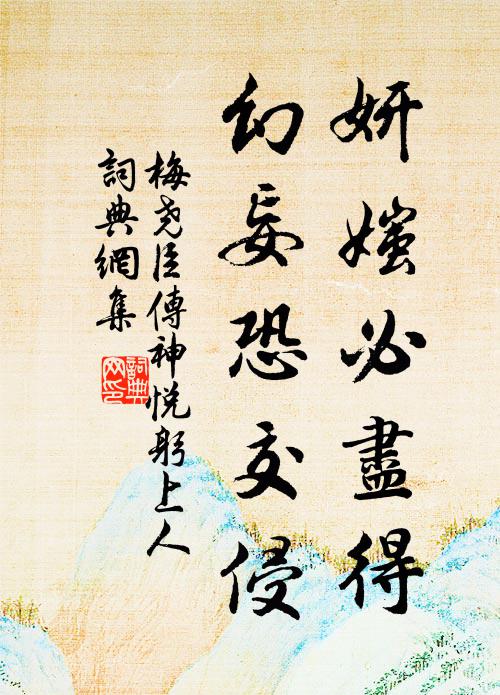 妍媸必盡得
幻妄恐交侵
梅堯臣傳神悅躬上人
詞典網集
詞典网印